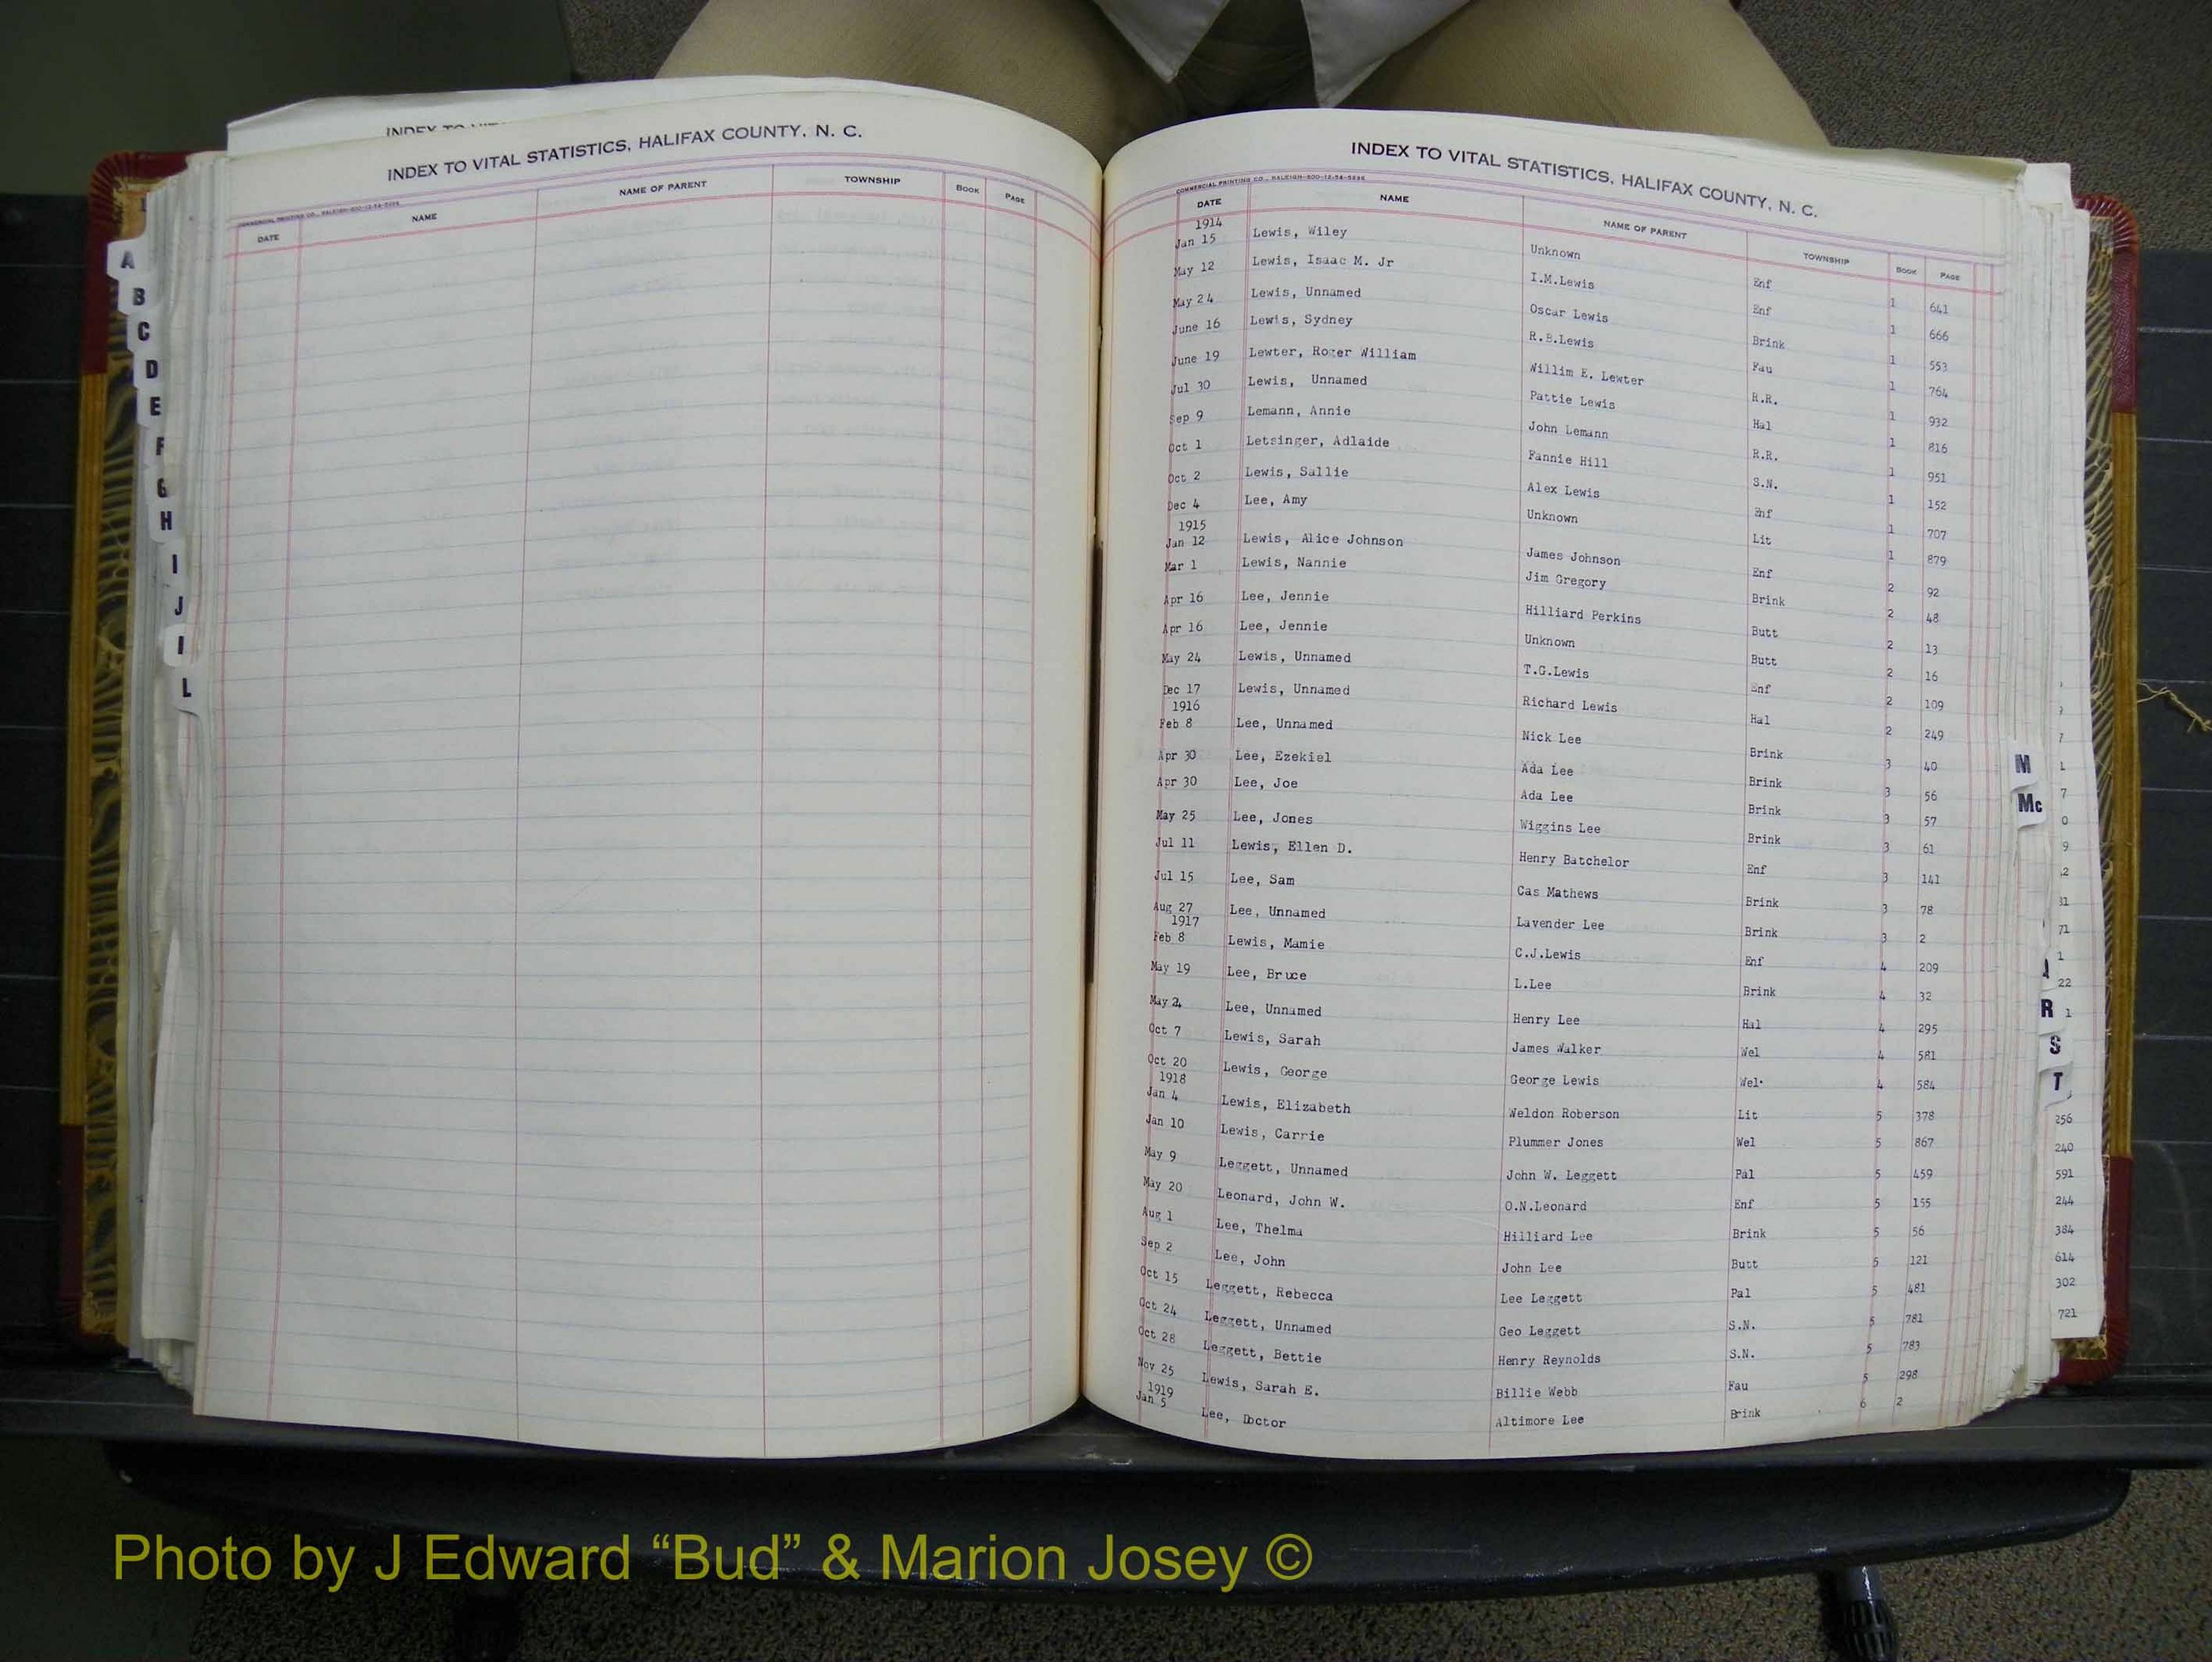 INDEX TO VITAL STATISTICS, HALIFAX COUNTY, N. C.
COMMERCIAL PRINTING CO., RALEIGH
DATE NAME NAME OF PARENT TOWNSHIP BOOK PAGE
A
B
C
D
E
F
G
H
I
J
L
INDEX TO VITAL STATISTICS, HALIFAX COUNTY, N. C.
COMMERCIAL PRINTING CO., RALEIGH
DATE NAME NAME OF PARENT TOWNSHIP BOOK PAGE
1914
Jan 15 Lewis, Wiley Unknown Enf 1 641
May 12 Lewis, Isaac M. Jr I.M.Lewis Enf 1 666
May 24 Lewis, Unnamed Oscar Lewis Brink 1 553
June 16 Lewis, Sydney R.B.Lewis Fau 1 764
June 19 Lewter, Roger William Willim E. Lewter R.R. 1 932
Jul 30 Lewis, Unnamed Pattie Lewis Hal 1 816
Sep 9 Lemann, Annie John Lemann R.R. 1 951
Oct 1 Letsinger, Adlaide Fannie Hill S.N. 1 152
Oct 2 Lewis, Sallie Alex Lewis Enf 1 707
Dec 4 Lee, Amy Unknown Lit 1 879
1915
Jan 12 Lewis, Alice Johnson James Johnson Enf 2 92
Mar 1 Lewis, Nannie Jim Gregory Brink 2 48
Apr 16 Lee, Jennie Hilliard Perkins Butt 2 13
Apr 16 Lee, Jennie Unknown Butt 2 16
May 24 Lewis, Unnamed T.G.Lewis Enf 2 109
Dec 17 Lewis, Unnamed Richard Lewis Hal 2 249
1916
Feb 8 Lee, Unnamed Nick Lee Brink 3 40
Apr 30 Lee, Ezekiel Ada Lee Brink 3 56
Apr 30 Lee, Joe Ada Lee Brink 3 57
May 25 Lee, Jones Wiggins Lee Brink 3 61
Jul 11 Lewis, Ellen D. Henry Batchelor Enf 3 141
Jul 15 Lee, Sam Cas Mathews Brink 3 78
Aug 27 Lee, Unnamed Lavender Lee Brink 3 2
1917
Feb 8 Lewis, Mamie C.J.Lewis Enf 4 209
May 19 Lee, Bruce L.Lee Brink 4 32
May 24 Lee, Unnamed Henry Lee Hal 4 295
Oct 7 Lewis, Sarah James Walker Wel 4 581
Oct 20 Lewis, George George Lewis Wel. 4 584
1918
Jan 4 Lewis, Elizabeth Weldon Roberson Lit 5 378
Jan 10 Lewis, Carrie Plummer Jones Wel 5 867
May 9 Leggett, Unnamed John W. Leggett Pal 5 459
May 20 Leonard, John W. O.N.Leonard Enf 5 155
Aug 1 Lee, Thelma Hilliard Lee Brink 5 56
Sep 2 Lee, John John Lee Butt 5 121
Oct 15 Leggett, Rebecca Lee Leggett Pal 5 481
Oct 24 Leggett, Unnamed Geo Leggett S.N. 5 781
Oct 28 Leggett, Bettie Henry Reynolds S.N. 5 783
Nov 25 Lewis, Sarah E. Billie Webb Fau 5 298
1919
Jan 5 Lee, Doctor Altimore Lee Brink 6 2
M
Mc
R
S
T
22
256
240
591
244
384
614
302
721
Photo by J Edward “Bud” & Marion Josey ©